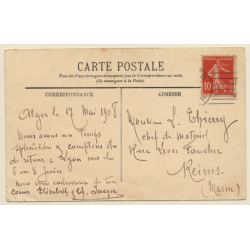 CARTE POSTALE
Tous les Pays étrangers n'acceptent pas la Correspondance au recto.
(Se renseigner à la Poste).
CORRESPONDANCE
ADRESSE
10
Alger le 17 Mai 1908
Nous avons un temps
splendide & comptons
de retour à Lyon vers le
6 ou 8 Juin
Nous vous embrassons
cousins Elisabeth &
Monsieur L. Thiery
chef de matériel
Rue Léon Faucher
Reims
(Marne)